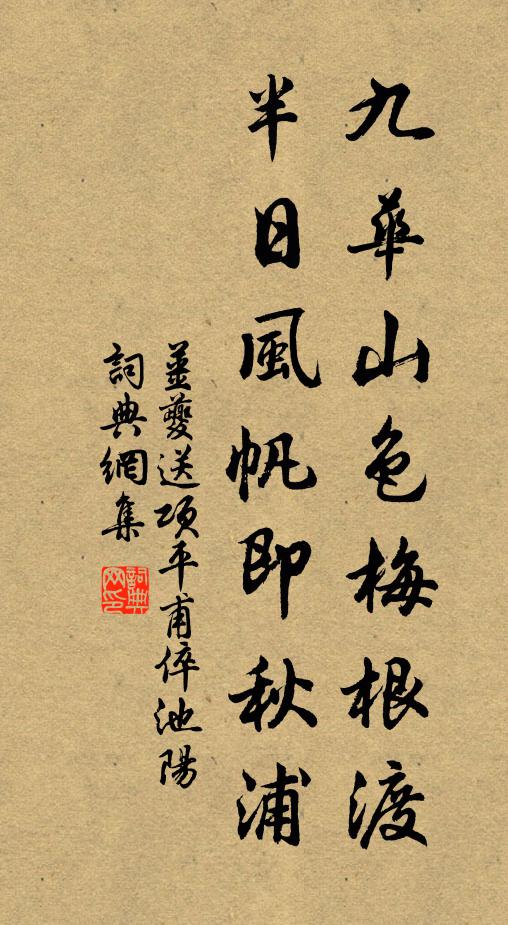 九華山色梅根渡
半日風帆即秋浦
薑夔送項平甫倅池陽
詞典網集
詞典
网印